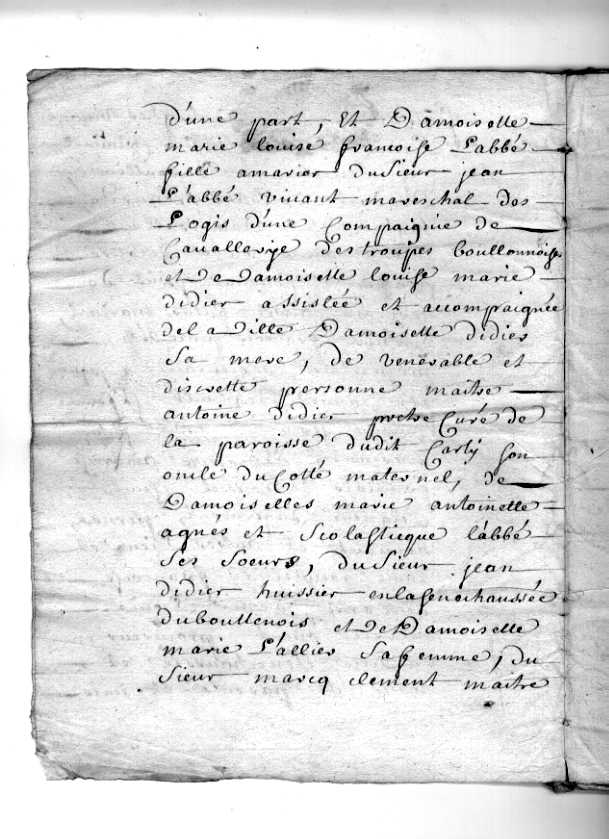 d'une part, Et Damoiselle
marie louise francoise L'abbé
fille amarier du Sieur jean
L'abbé vivant mareschal des
Logis d'une Compaignie de
Cavallerye des troupes boullonnoises
et de Damoiselle louise marie
didier assistée et accompraignée
de la ditte Damoiselle didier
Sa mere, de venerable et
discrette personne maitre
antoine didier prestre Curé de
la paroisse dudit Carly son
oncle du Cotté maternel, de
Damoiselles marie antoinette
agnés et Scolasticque l'abbé
Ses Soeurs, du Sieur jean
didier huissier en la senechaussée
du boullenois et de Damoiselle
marie L'allier Sa femme, du
Sieur marcq clement maitre